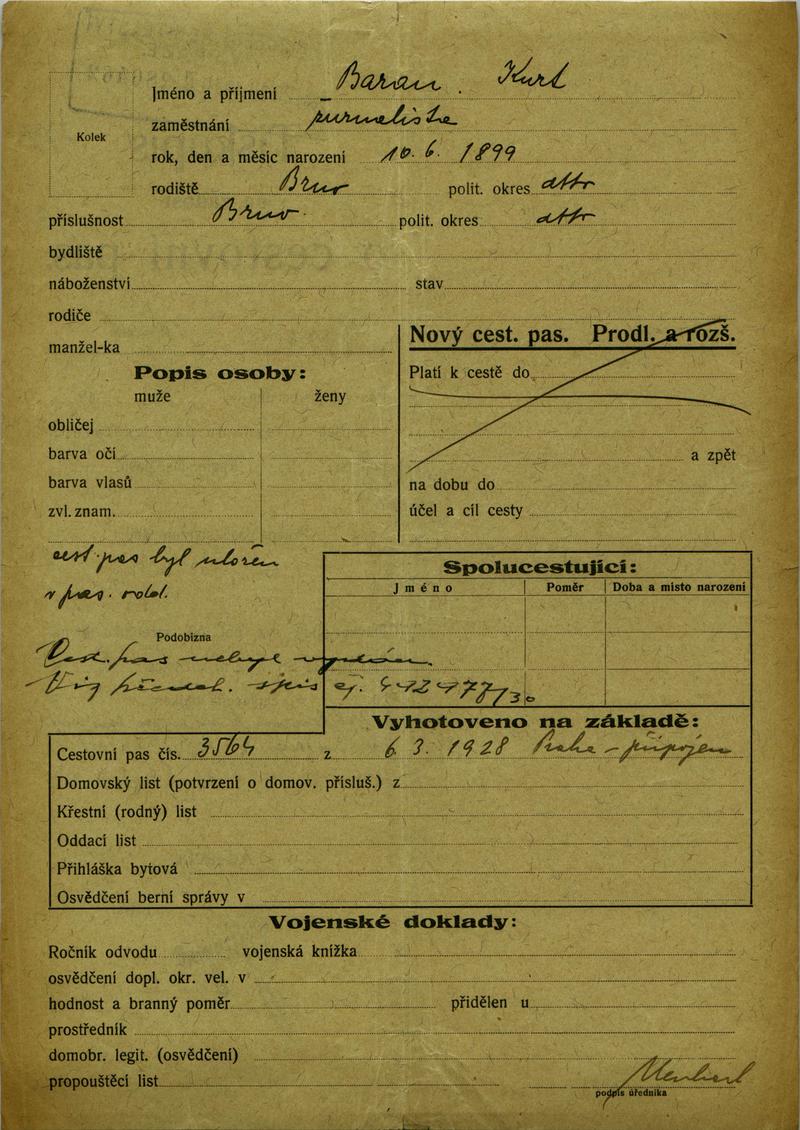 Kolek
Jméno a příjmení Baran Kurt
zaměstnání žurnalista
rok, den a měsíc narození 10. 6. 1899
rodiště Brno polit. okres dtto
příslušnost Brno polit. okres dtto
bydliště
náboženství stav
rodiče
manžel-ka
Nový cest. pas. Prodl. a rozš.
Popis osoby:
muže ženy
Platí k cestě do
obličej
barva očí
a zpět
barva vlasů
na dobu do
zvl. znam.
účel a cíl cesty
cest. pas byl uložen
v pas. odd.
Spolucestující:
Jméno Poměr Doba a místo narození
Podobizna
Cest. pas nebyl
čj.
Vyhotoveno na základě:
Cestovní pas čís. 3564 z 6. 3. 1928 Praha - připojen
Domovský list (potvrzení o domov. přísluš.) z
Křestní (rodný) list
Oddací list
Přihláška bytová
Osvědčení berní správy v
Vojenské doklady:
Ročník odvodu vojenská knížka
osvědčení dopl. okr. vel. v
hodnost a branný poměr přidělen u
prostředník
domobr. legit. (osvědčení)
propouštěcí list
podpis úředníka